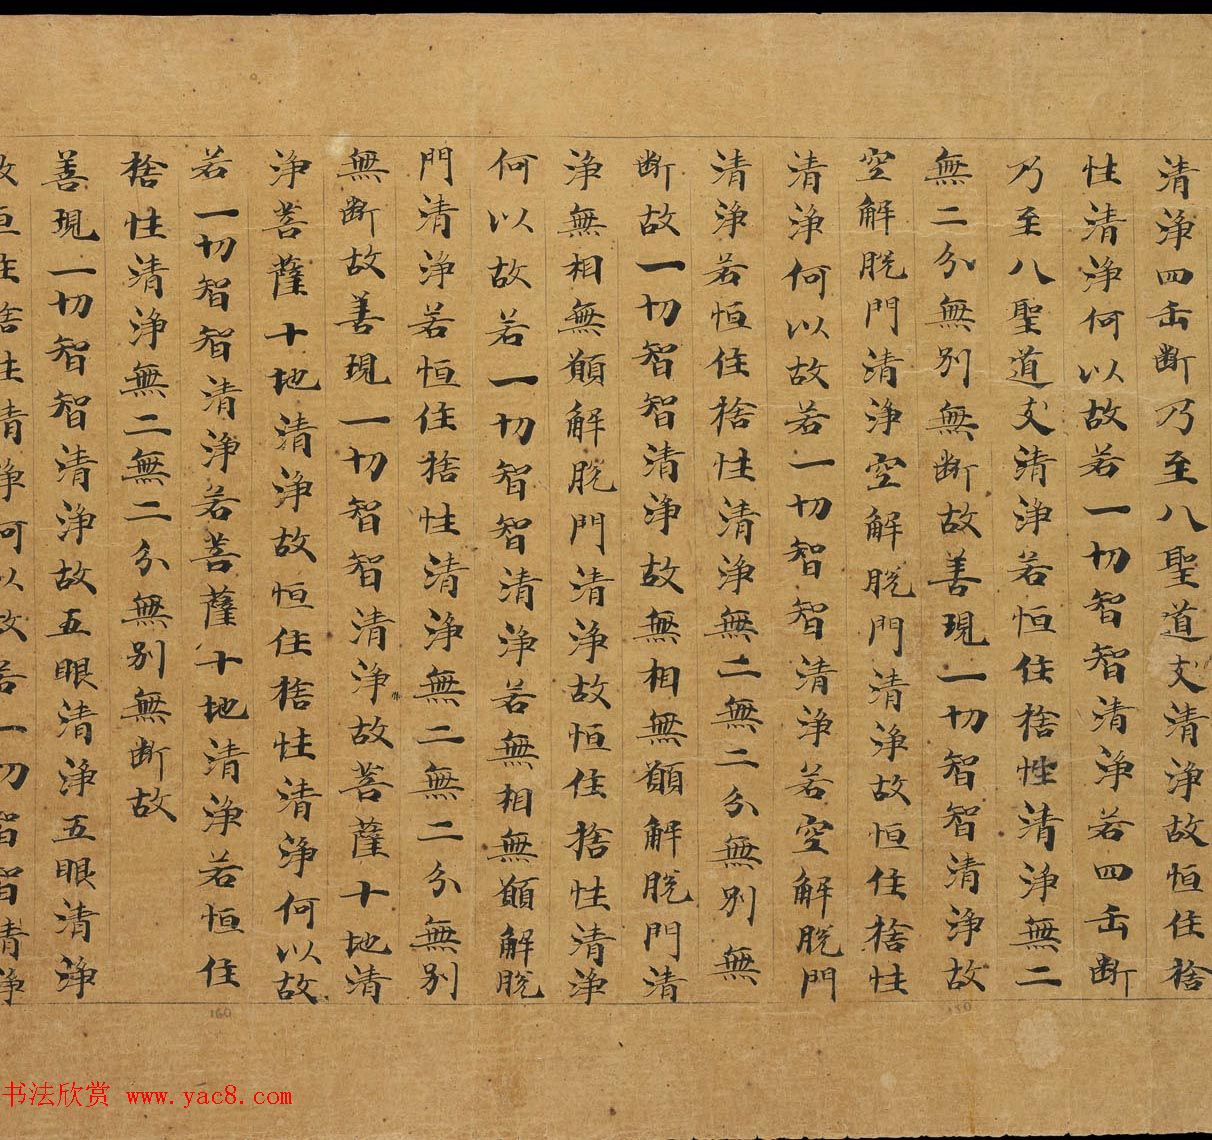 清淨四正断乃至八聖道支清淨故恒住捨
性清淨何以故若一切智智清淨若四正断
乃至八聖道支清淨若恒住捨性清淨無二
無二分無別無断故善現一切智智清淨故
空解脫門清淨空解脫門清淨故恒住捨性
清淨何以故若一切智智清淨若空解脫門
清淨若恒住捨性清淨無二無二分無別無
断故一切智智清淨故無相無願解脫門清
淨無相無願解脫門清淨故恒住捨性清淨
何以故若一切智智清淨若無相無願解脫
門清淨若恒住捨性清淨無二無二分無別
無断故善現一切智智清淨故菩薩十地清
淨菩薩十地清淨故恒住捨性清淨何以故
若一切智智清淨若菩薩十地清淨若恒住
捨性清淨無二無二分無別無断故
善現一切智智清淨故五眼清淨五眼清淨
故恒住捨性清淨何以故若一切智智清淨
160
书法欣赏 www.yac8.com